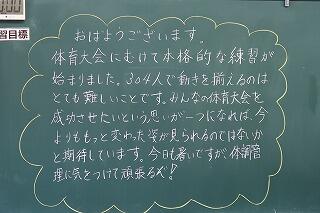 習目標
おはようございます。
体育大会にむけて本格的な練習が
始まりました。304人で動きを揃えるのは
とても難しいことです。みんなの体育大会を
成功させたいという思いが一つになれば、今
よりももっと変わった姿が見られるのではないか
と期待しています。今日も暑いですが、体調管
理に気をつけて頑張るぞ!